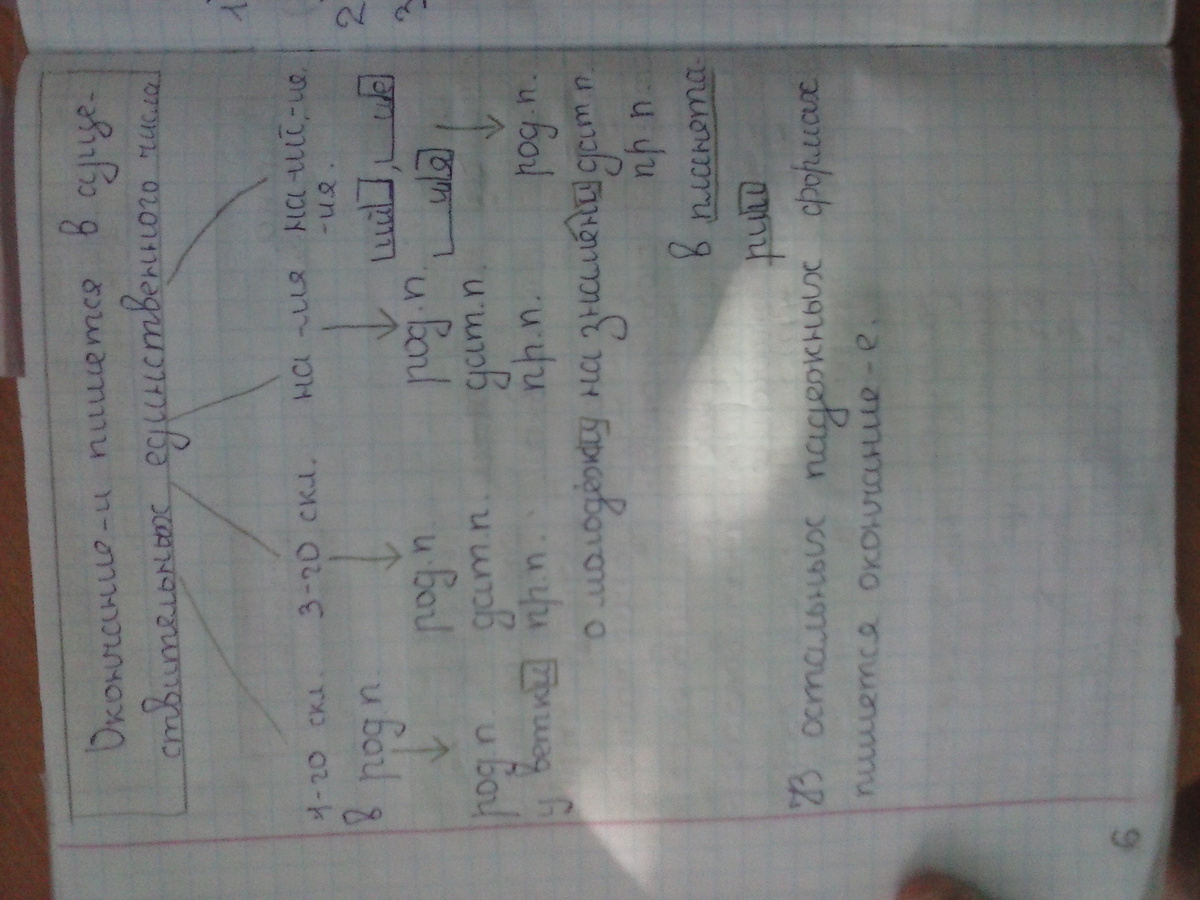 1
2
3
Окончание -и пишется в суще-
ствительных единственного числа
1-го скл. 3-го скл. на -ия на -ий, -ие,
-ия.
в род.п. ий, ие
род.п. род.п. ия
род.п. дат.п. дат.п.
у ветки пр.п. пр.п. род.п.
о молодёжи на знамени дат.п.
пр.п.
в планета-
рии
В остальных падежных формах
пишется окончание -е.
6